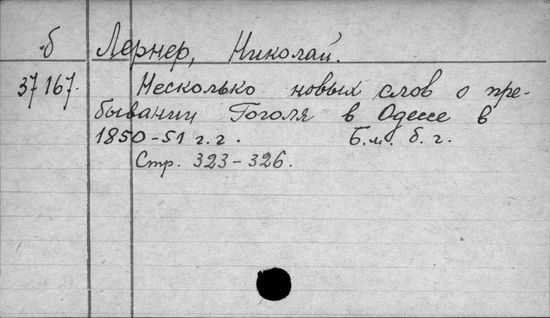 б Лернер, Николай.
37167. Несколько новых слов о пре-
бывании Гоголя в Одессе в
1850-51 г.г. Б.м. б.г.
Стр. 323-326.